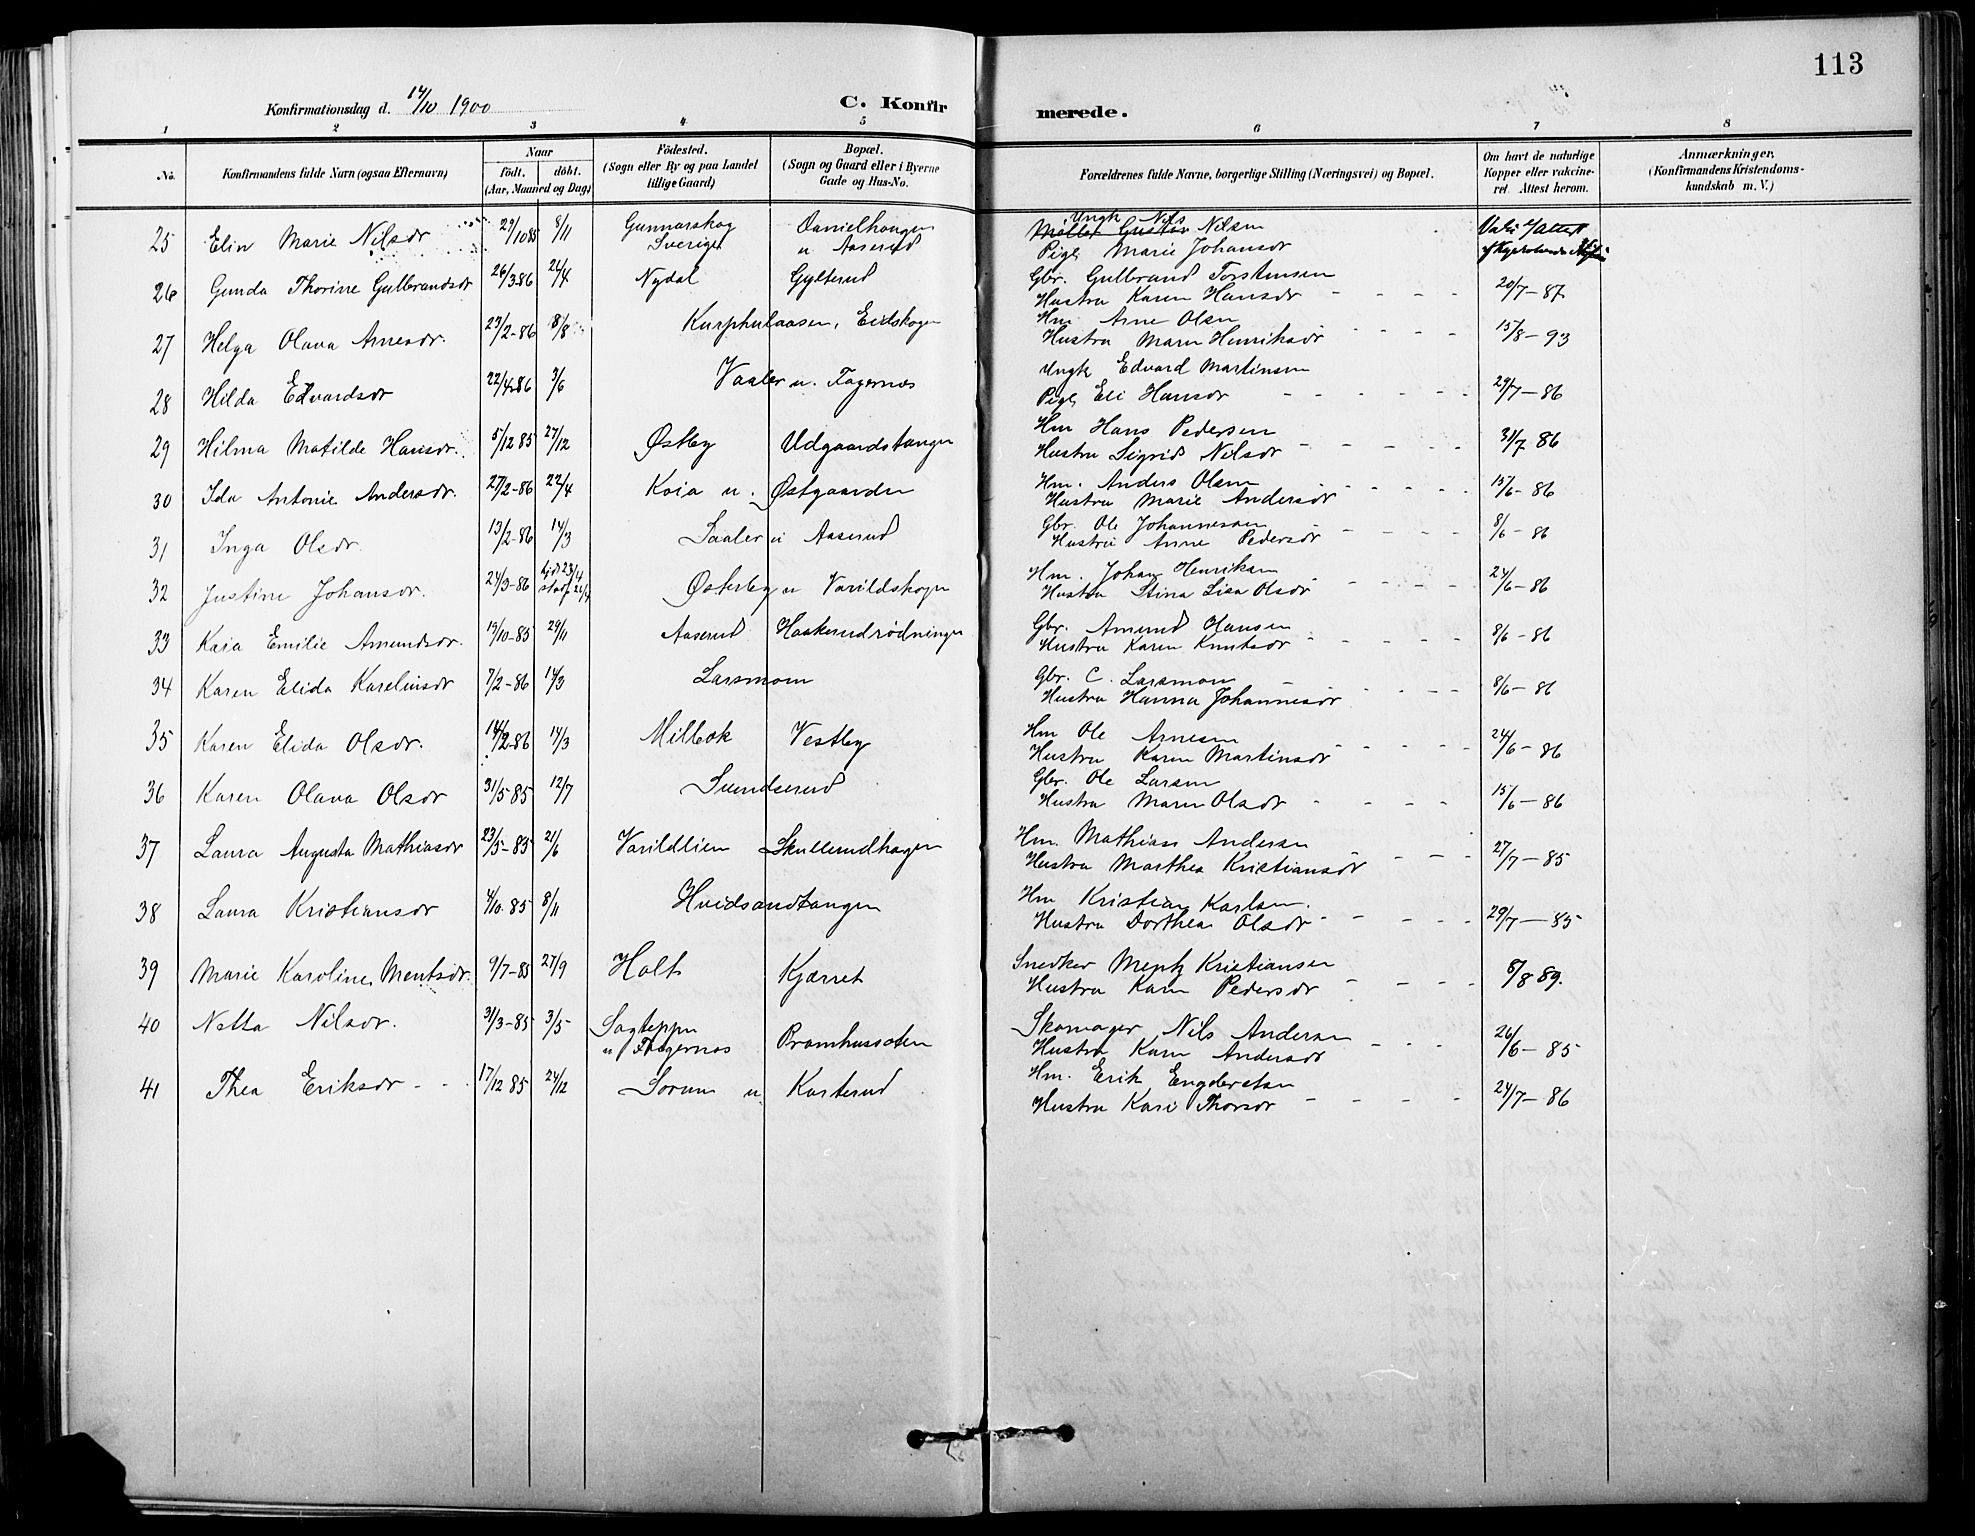 113
Konfirmationsdag d. 14/10 1900
C. Konfirmerede.
1 2 3 4 5 6 7 8
No.
Konfirmandens fulde Navn (ogsaa Efternavn)
Naar
födt. döbt.
(Aar, Maaned og Dag)
Födested.
(Sogn eller By og paa Landet
tillige Gaard)
Bopæl.
(Sogn og Gaard eller i Byerne
Gade og Hus-No.
Forældrenes fulde Navne, borgerlige Stilling (Næringsvei) og Bopæl.
Om havt de naturlige
Kopper eller vakcine-
ret. Attest herom.
Anmærkninger,
(Konfirmandens Kristendoms-
kundskab m. V.)
25 Elin Marie Nilsdr 29/10 85 8/11 Gunnarskog Sverige Danielhaugen u Aaserud Ungk Nils Nilsen
Pige Marie Johansdr
26 Gunda Thorine Gulbrandsdr 26/3 86 26/4 Nydal Gylterud Gbr. Gulbrand Torstensen
Hustru Karen Hansdr 20/7-87
27 Helga Olava Arnesdr. 23/2-86 8/8 Kurphulaasen, Eidskogen Hm Arne Olsen
Hustru Maren Henriksdr 15/8-93
28 Hilda Edvardsdr 22/4 86 3/6 Vaaler u. Fagernæs Ungk Edvard Martinsen
Pige Eli Hansdr 29/7-86
29 Hilma Matilde Hansdr. 5/12 85 27/12 Østby Udgaardstangen Hm Hans Pedersen
Hustru Sigrid Nilsdr 31/7 86
30 Ida Antonie Andersdr. 27/2-86 22/4 Koia u. Østgaarden Hm. Anders Olsen
Hustru Marie Andersdr 15/6-86
31 Inga Olsdr. 13/2-86 14/3 Saaler u Aaserud Gbr. Ole Johannessen
Hustru Anne Pedersdr 8/6-86
32 Justine Johansdr. 24/3-86 Østerby u Varildskogen Hm. Johan Henriksen
Hustru Stina Lisa Olsdr 24/6-86
33 Kaia Emilie Amundsdr. 19/10-85 29/11 Aaserud Haakerudrødningen Gbr. Amund Hansen
Hustru Karen Knutsdr 8/6-86
34 Karen Elida Karelinsdr 7/2-86 14/3 Larsmoen Gbr. C. Larsmon
Hustru Hanna Johannesdr 8/6-86
35 Karen Elida Olsdr. 14/2-86 14/3 Milbak Vestby Hm Ole Arnesen
Hustru Karen Martinsdr 24/6-86
36 Karen Olava Olsdr 31/5-85 12/7 Svendserud Gbr. Ole Larsen
Hustru Maren Olsdr 15/6-86
37 Laura Augusta Mathiasdr 23/5-85 21/6 Varildlien Skullerudhagen Hm. Mathias Andersen
Hustru Marthea Kristiansdr 27/7-85
38 Laura Kristiansdr 4/10. 85 8/11 Hvidsandtangen Hm Kristian Karlsen.
Hustru Dorthea Olsdr 29/7-85
39 Marie Karoline Mentsdr. 9/7-85 27/9 Holt Kjærret Snedker Mentz Kristiansen
Hustru Karen Pedersdr 8/8 89.
40 Netta Nilsdr. 31/3-85 3/5 Sagteppen u Fagernæs Pramhussaten Skomager Nils Andersen
Hustru Karen Andersdr 26/6-85
41 Thea Eriksdr 17/12 85 24/12 Sorum u. Kasterud Hm. Erik Engderstan
Hustru Kari Thorsdr 24/7-86